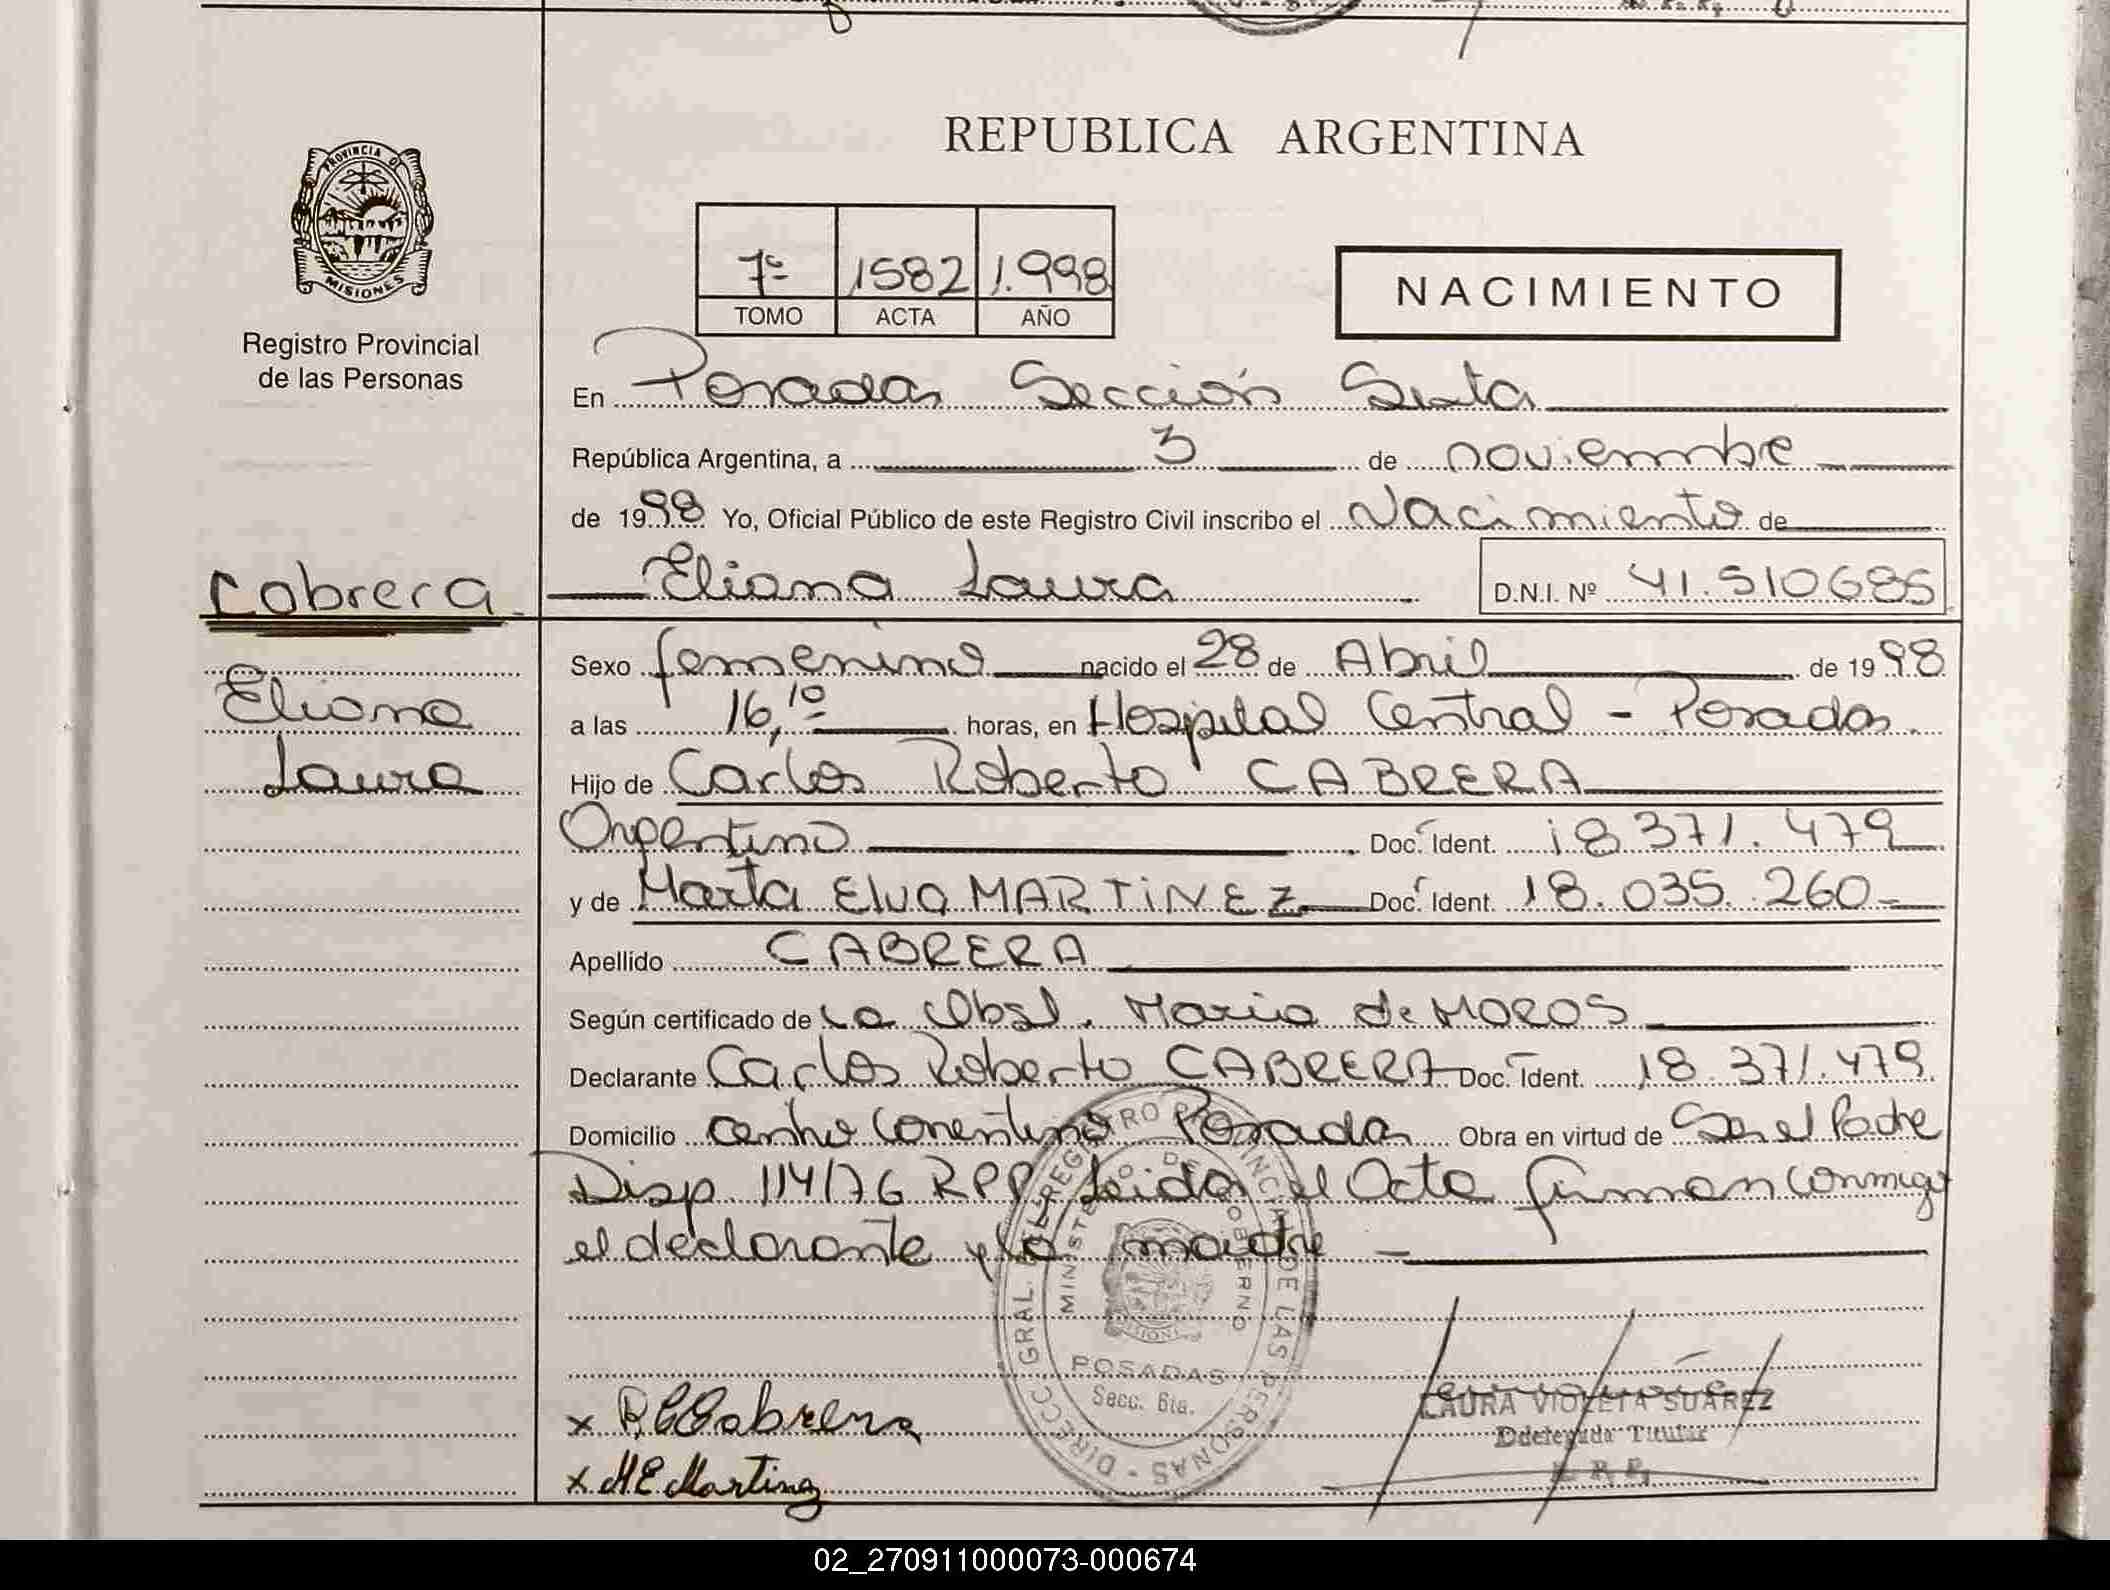 REPUBLICA ARGENTINA
PROVINCIA DE
MISIONES
Registro Provincial
de las Personas
7º 1582 1.998
TOMO ACTA AÑO
NACIMIENTO
En Posadas Sección Sexta
República Argentina, a 3 de noviembre
de 1998 Yo, Oficial Público de este Registro Civil inscribo el Nacimiento de
Cabrera Eliana Laura D.N.I. Nº 41.510685
Sexo femenino nacido el 28 de Abril de 1998
Eliana
a las 16,10 horas, en Hospital Central - Posadas.
Laura
Hijo de Carlos Roberto CABRERA
Argentino Doc. Ident. 18371.479
y de Marta Elva MARTINEZ Doc. Ident. 18.035.260
Apellido CABRERA
Según certificado de La Obst. Maria de MOROS
Declarante Carlos Roberto CABRERA Doc. Ident. 18.371.479
Domicilio Posadas Obra en virtud de Ser el Padre
Disp. 114/76 RPP Leida el Acta firman conmigo
el declarante y la madre
DIRECC. GRAL. DEL REGISTRO PROVINCIAL DE LAS PERSONAS
MINISTERIO DE GOBIERNO
MISIONES
POSADAS
Secc. 6ta.
x R.C Cabrera
x M E Martinez
LAURA VIOLETA SUAREZ
Ddelegada Titular
02_270911000073-000674